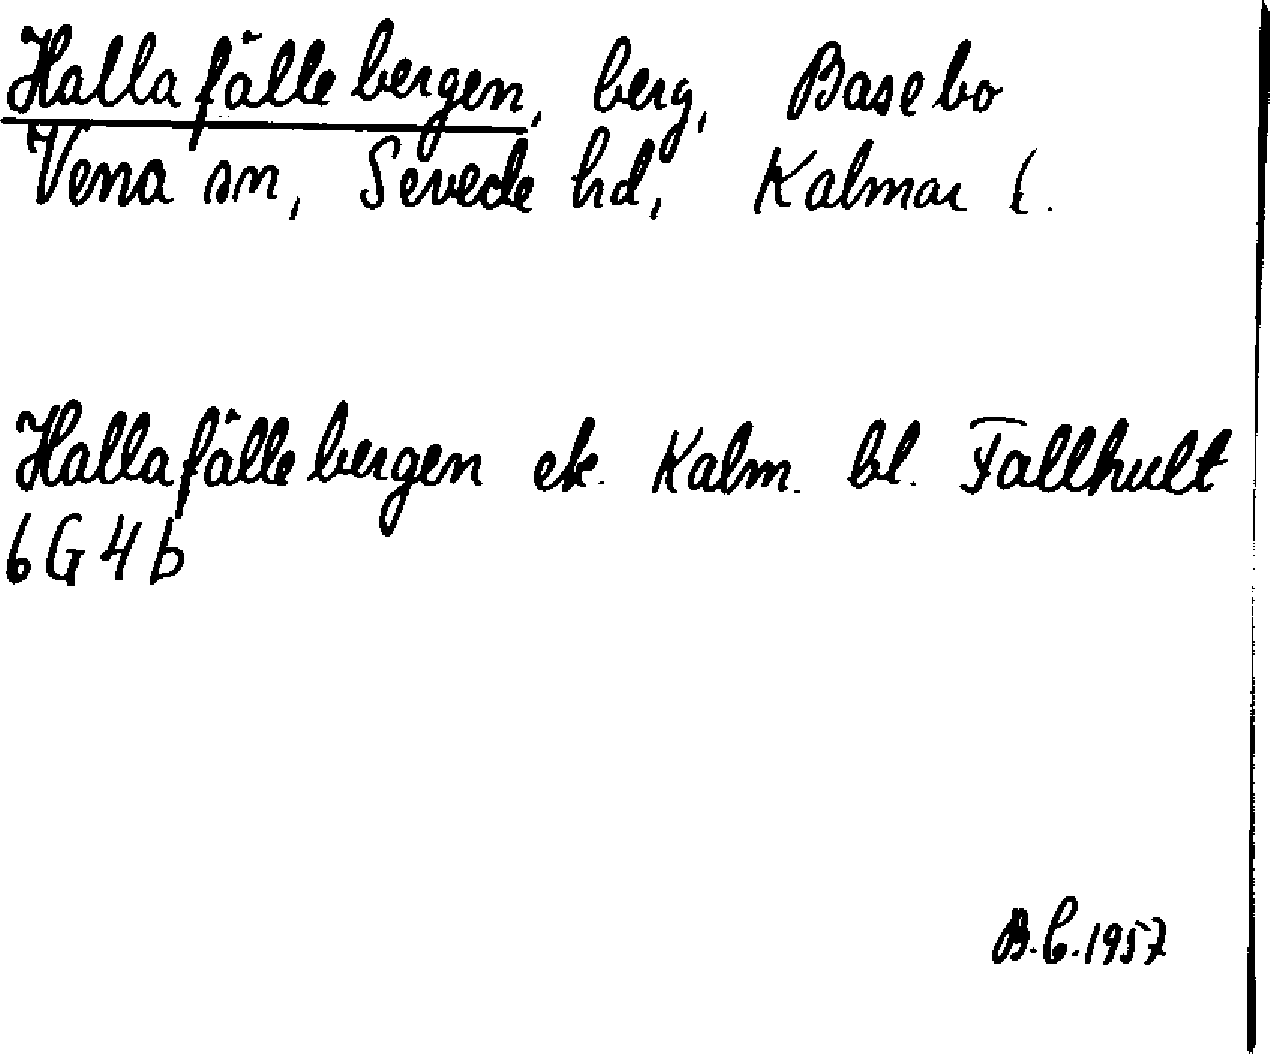 Hallafällebergen, berg, Basebo
Vena sn, Sevede hd, Kalmar l.
Hallafällebergen ek. Kalm. bl. Fallhult
6G4b
B.C.1957